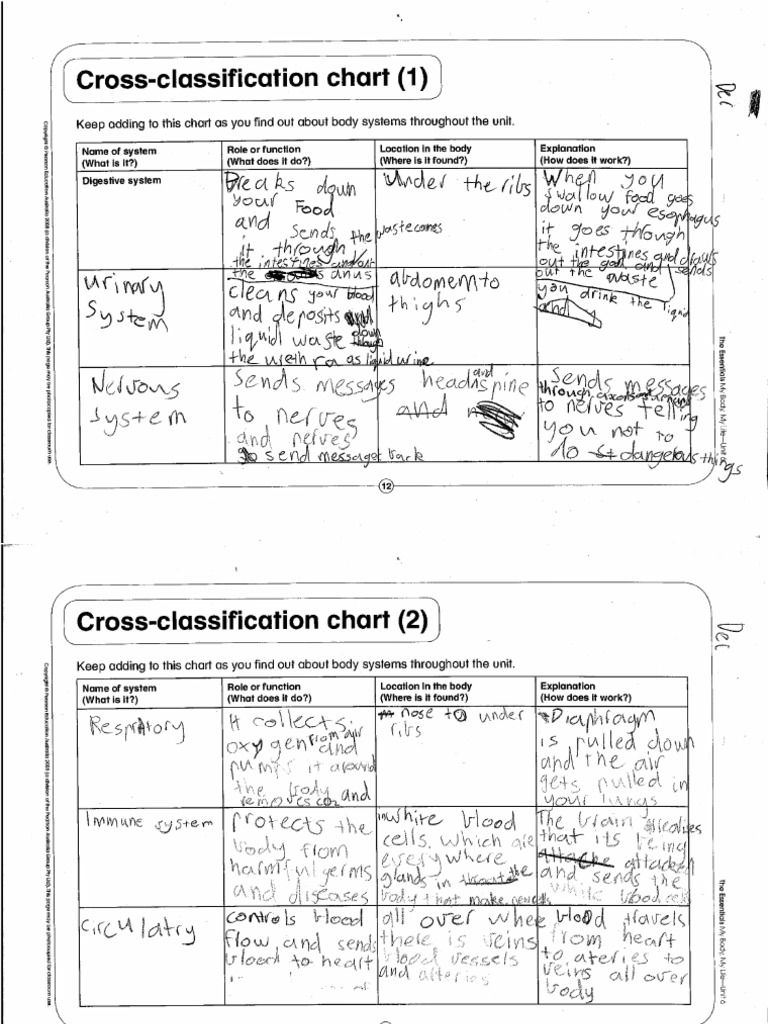 Cross-classification chart (1)
Dec
Keep adding to this chart as you find out about body systems throughout the unit.
Name of system
(What is it?)
Role or function
(What does it do?)
Location in the body
(Where is it found?)
Explanation
(How does it work?)
Digestive system
Breaks down
your Food
and sends
it through
the waste comes
the intestines and out
the anus
Under the ribs
When you
swallow food goes
down your esophagus
it goes through
the intestines and draws
out the good and sends
out the waste
Urinary
System
cleans your blood
and deposits
liquid waste down
the urethra as liquid urine
abdomen to
thighs
you drink the liquid
and
Nervous
System
Sends messages
to nerves
and nerves
send message back
head and spine
and
Sends messages
through axons
to nerves telling
you not to
do dangerous things
12
Copyright © Pearson Education Australia
The Essentials My Body, My Life—Unit 6
Cross-classification chart (2)
Dec
Keep adding to this chart as you find out about body systems throughout the unit.
Name of system
(What is it?)
Role or function
(What does it do?)
Location in the body
(Where is it found?)
Explanation
(How does it work?)
Respratory
It collects
oxygen from air and
pumps it around
the body and
removes co2
nose to under
ribs
Diaphragm
is pulled down
and the air
gets pulled in
your lungs
Immune system
protects the
body from
harmful germs
and diseases
in white blood
cells, which are
everywhere
glands in throat the
body that make
The brain realises
that its being
attacked
and sends the
white blood cells
Circulatry
controls blood
flow and sends
blood to heart
all over where
there is veins
blood vessels
and arteries
blood travels
from heart
to ateries to
veins all over
body
Copyright © Pearson Education Australia
The Essentials My Body, My Life—Unit 6